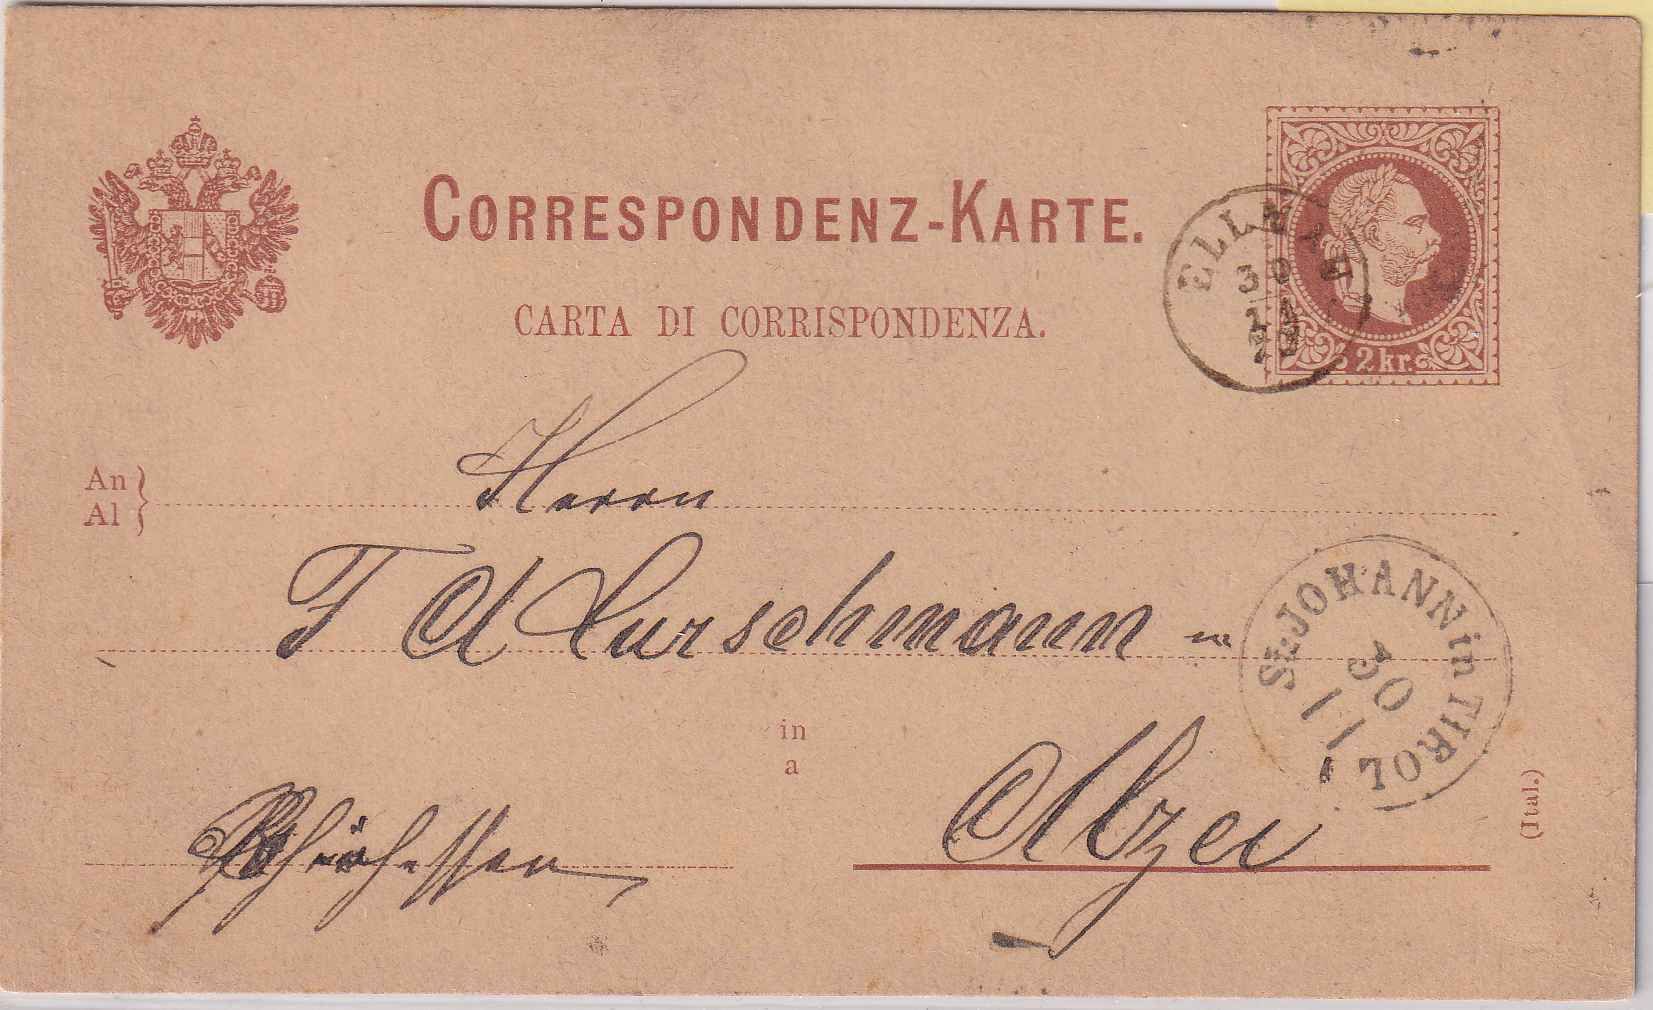 CORRESPONDENZ-KARTE.
CARTA DI CORRISPONDENZA.
2 kr.
30
11
An
Al
Herrn
F A Curschmann in
St. JOHANN in TIROL
30
11
in
a
Alzei
Rheinhessen
(Ital.)